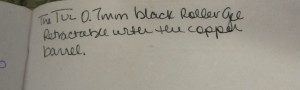 The TUL 0.7mm black Roller Gel
Retractable with the copper
barrel.